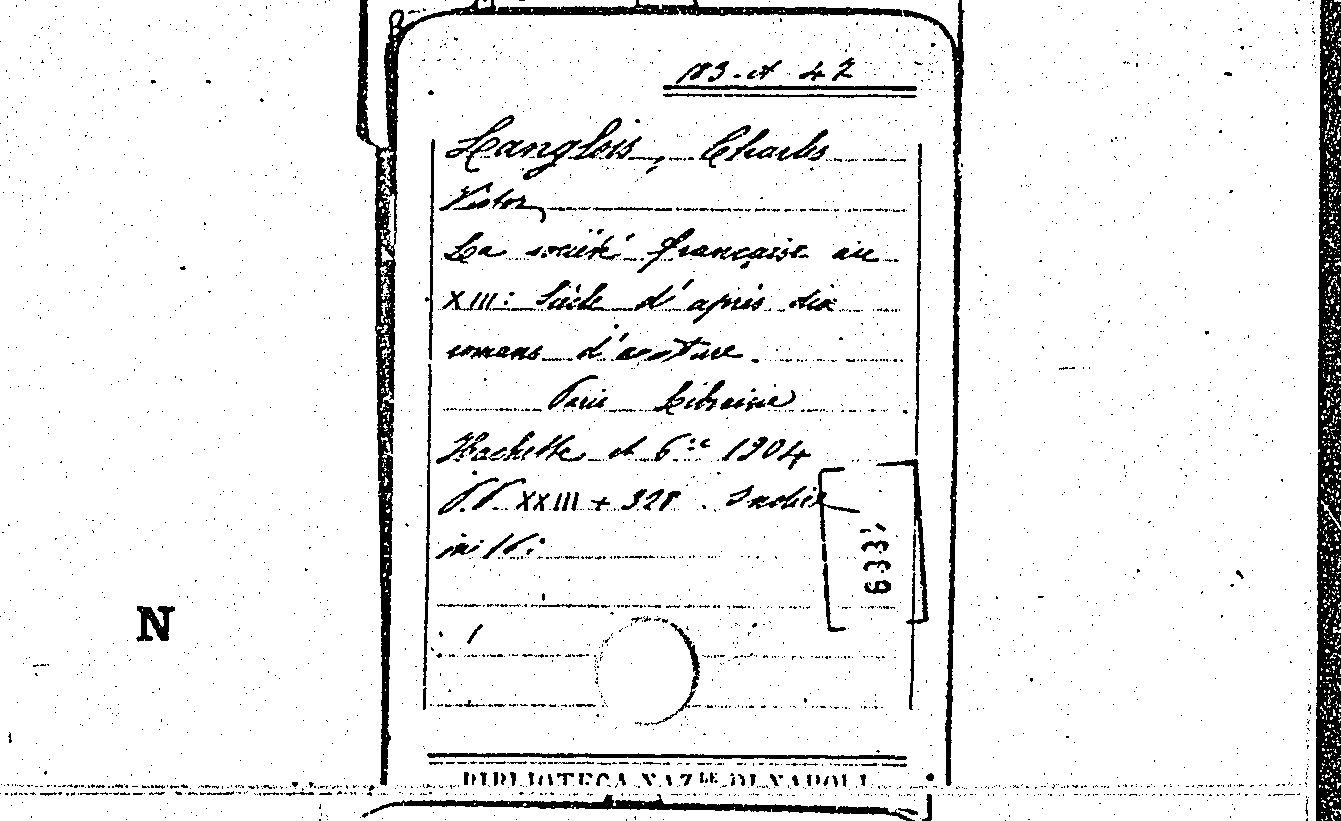 183. A 47
Langlois, Charles
Victor,
La société française au
XIII: Siècle d'après dix
romans d'aventure.
Paris Librairie
Hachette et Cie 1904
P.P. XXIII + 328. Indice
in 16:
633
N
1
BIBLIOTECA NAZLE DI NAPOLI